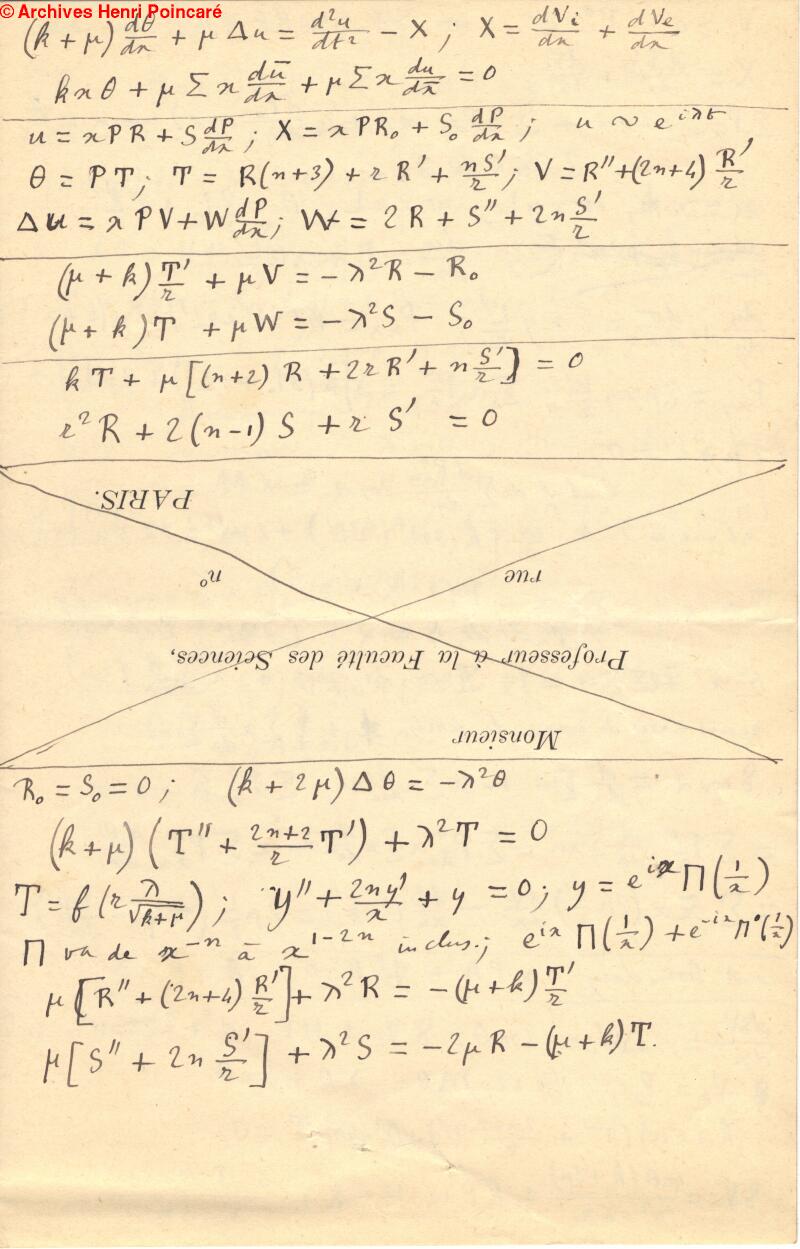 © Archives Henri Poincaré
(k + μ) dθ/dx + μ Δu = d²u/dt² − X ; X = dVi/dx + dVe/dx
kxθ + μ Σ x dū/dx + μ Σ x du/dx̄ = 0
u = xPR + S dP/dx ; X = xPR₀ + S₀ dP/dx ; u ∼ e^{iλt}
θ = PT ; T = R(n+3) + rR' + nS'/r ; V = R'' + (2n+4) R'/r
Δu = xPV + W dP/dx ; W = 2R + S'' + 2n S'/r
(μ + k) T'/r + μV = −λ²R − R₀
(μ + k)T + μW = −λ²S − S₀
kT + μ[(n+2) R + 2rR' + n S'/r] = 0
r²R + 2(n−1) S + rS' = 0
PARIS.
rue n°
Professeur à la Faculté des Sciences,
Monsieur
R₀ = S₀ = 0 ; (k + 2μ) Δθ = −λ²θ
(k+μ) (T'' + 2n+2/r T') + λ²T = 0
T = f(r λ/√k+μ) ; y'' + 2ny'/x + y = 0 ; y = e^{ix} Π(1/x)
Π va de x^{−n} à x^{1−2n} inclus. ; e^{ix} Π(1/x) + e^{−ix} Π°(1/x)
μ [R'' + (2n+4) R'/r] + λ²R = −(μ+k) T'/r
μ [S'' + 2n S'/r] + λ²S = −2μR − (μ+k)T.